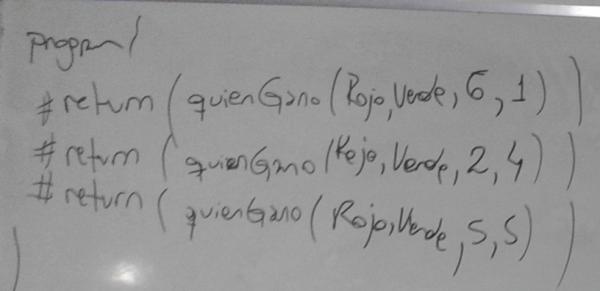 program {
# return ( quienGano ( Rojo, Verde, 6, 1 ) )
# return ( quienGano ( Rojo, Verde, 2, 4 ) )
# return ( quienGano ( Rojo, Verde, 5, 5 ) )
}